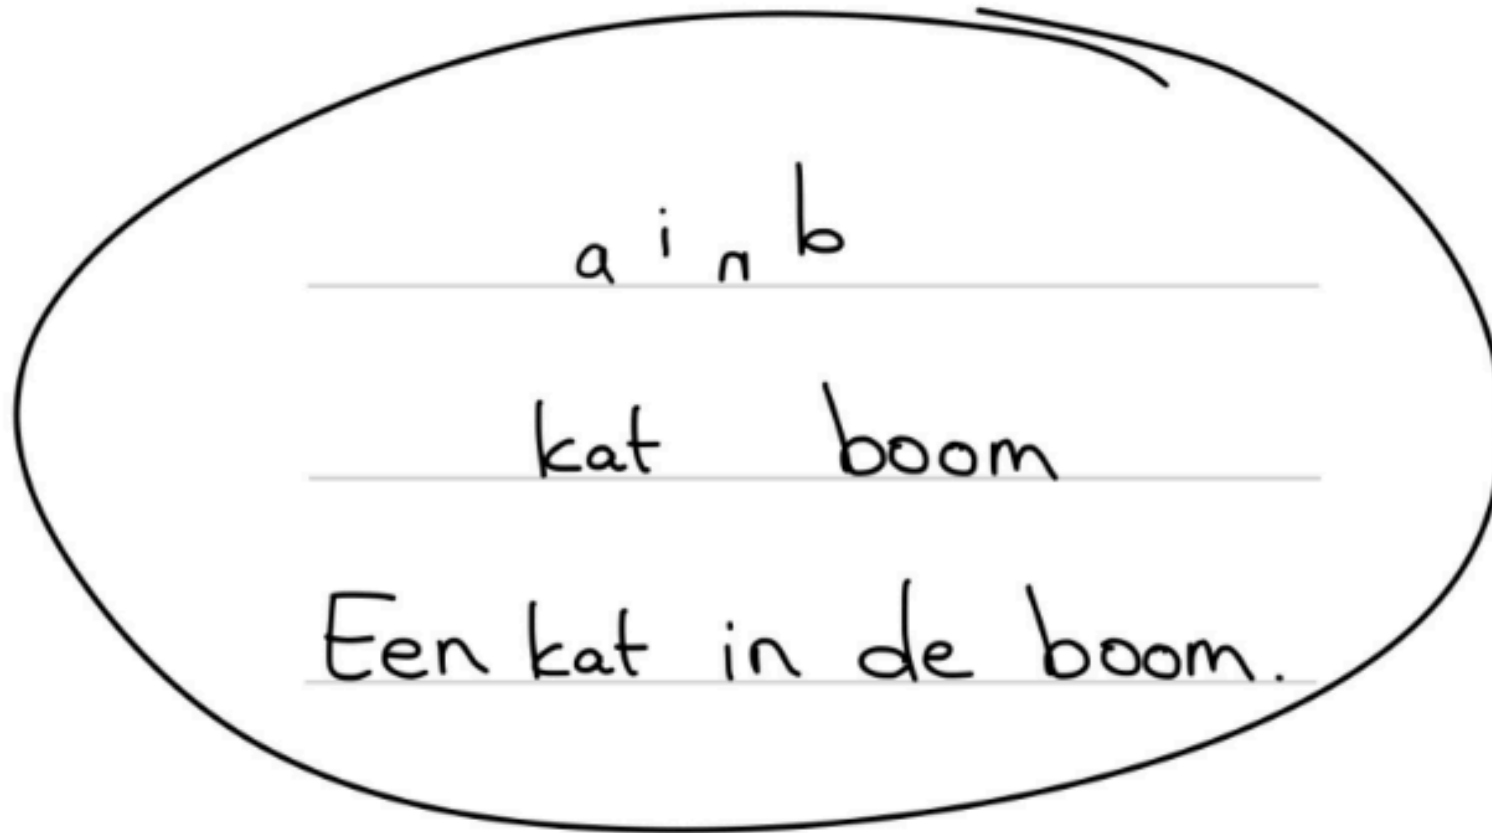 a i n b
kat boom
Een kat in de boom.